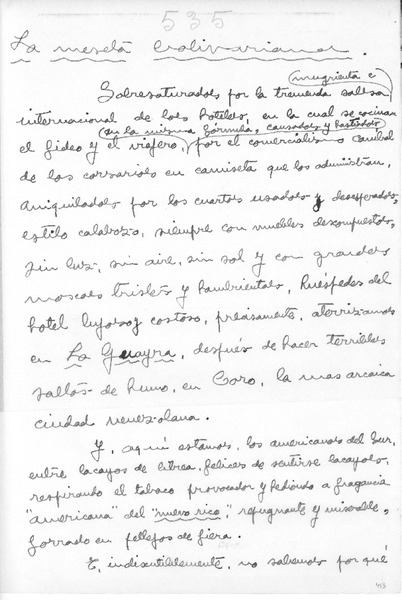 535
La meseta bolivariana.
mugrienta e
Sobresaturados por la tremenda salsa
internacional de los hoteles, en la cual se cocinan
en la misma fórmula, cansados y hastiados
el fideo y el viajero, por el comercialismo caníbal
de los corsarios en camiseta que los administran,
aniquilados por los cuartos usados y desesperados,
estilo calabozo, siempre con muebles descompuestos,
sin luz, sin aire, sin sol y con grandes
moscas tristes y hambrientas, huéspedes del
hotel lujoso y costoso, precisamente, aterrizamos
en La Guayra, después de hacer terribles
saltos de humo, en Coro, la mas arcaica
ciudad venezolana.
Y, aquí estamos, los americanos del Sur,
entre lacayos de librea, felices de sentirse lacayos,
respirando el tabaco provocador y hediondo a fragancia
"americana" del "nuevo rico", repugnante y miserable,
forrado en pellejos de fiera.
E, indiscutiblemente, no sabemos por qué